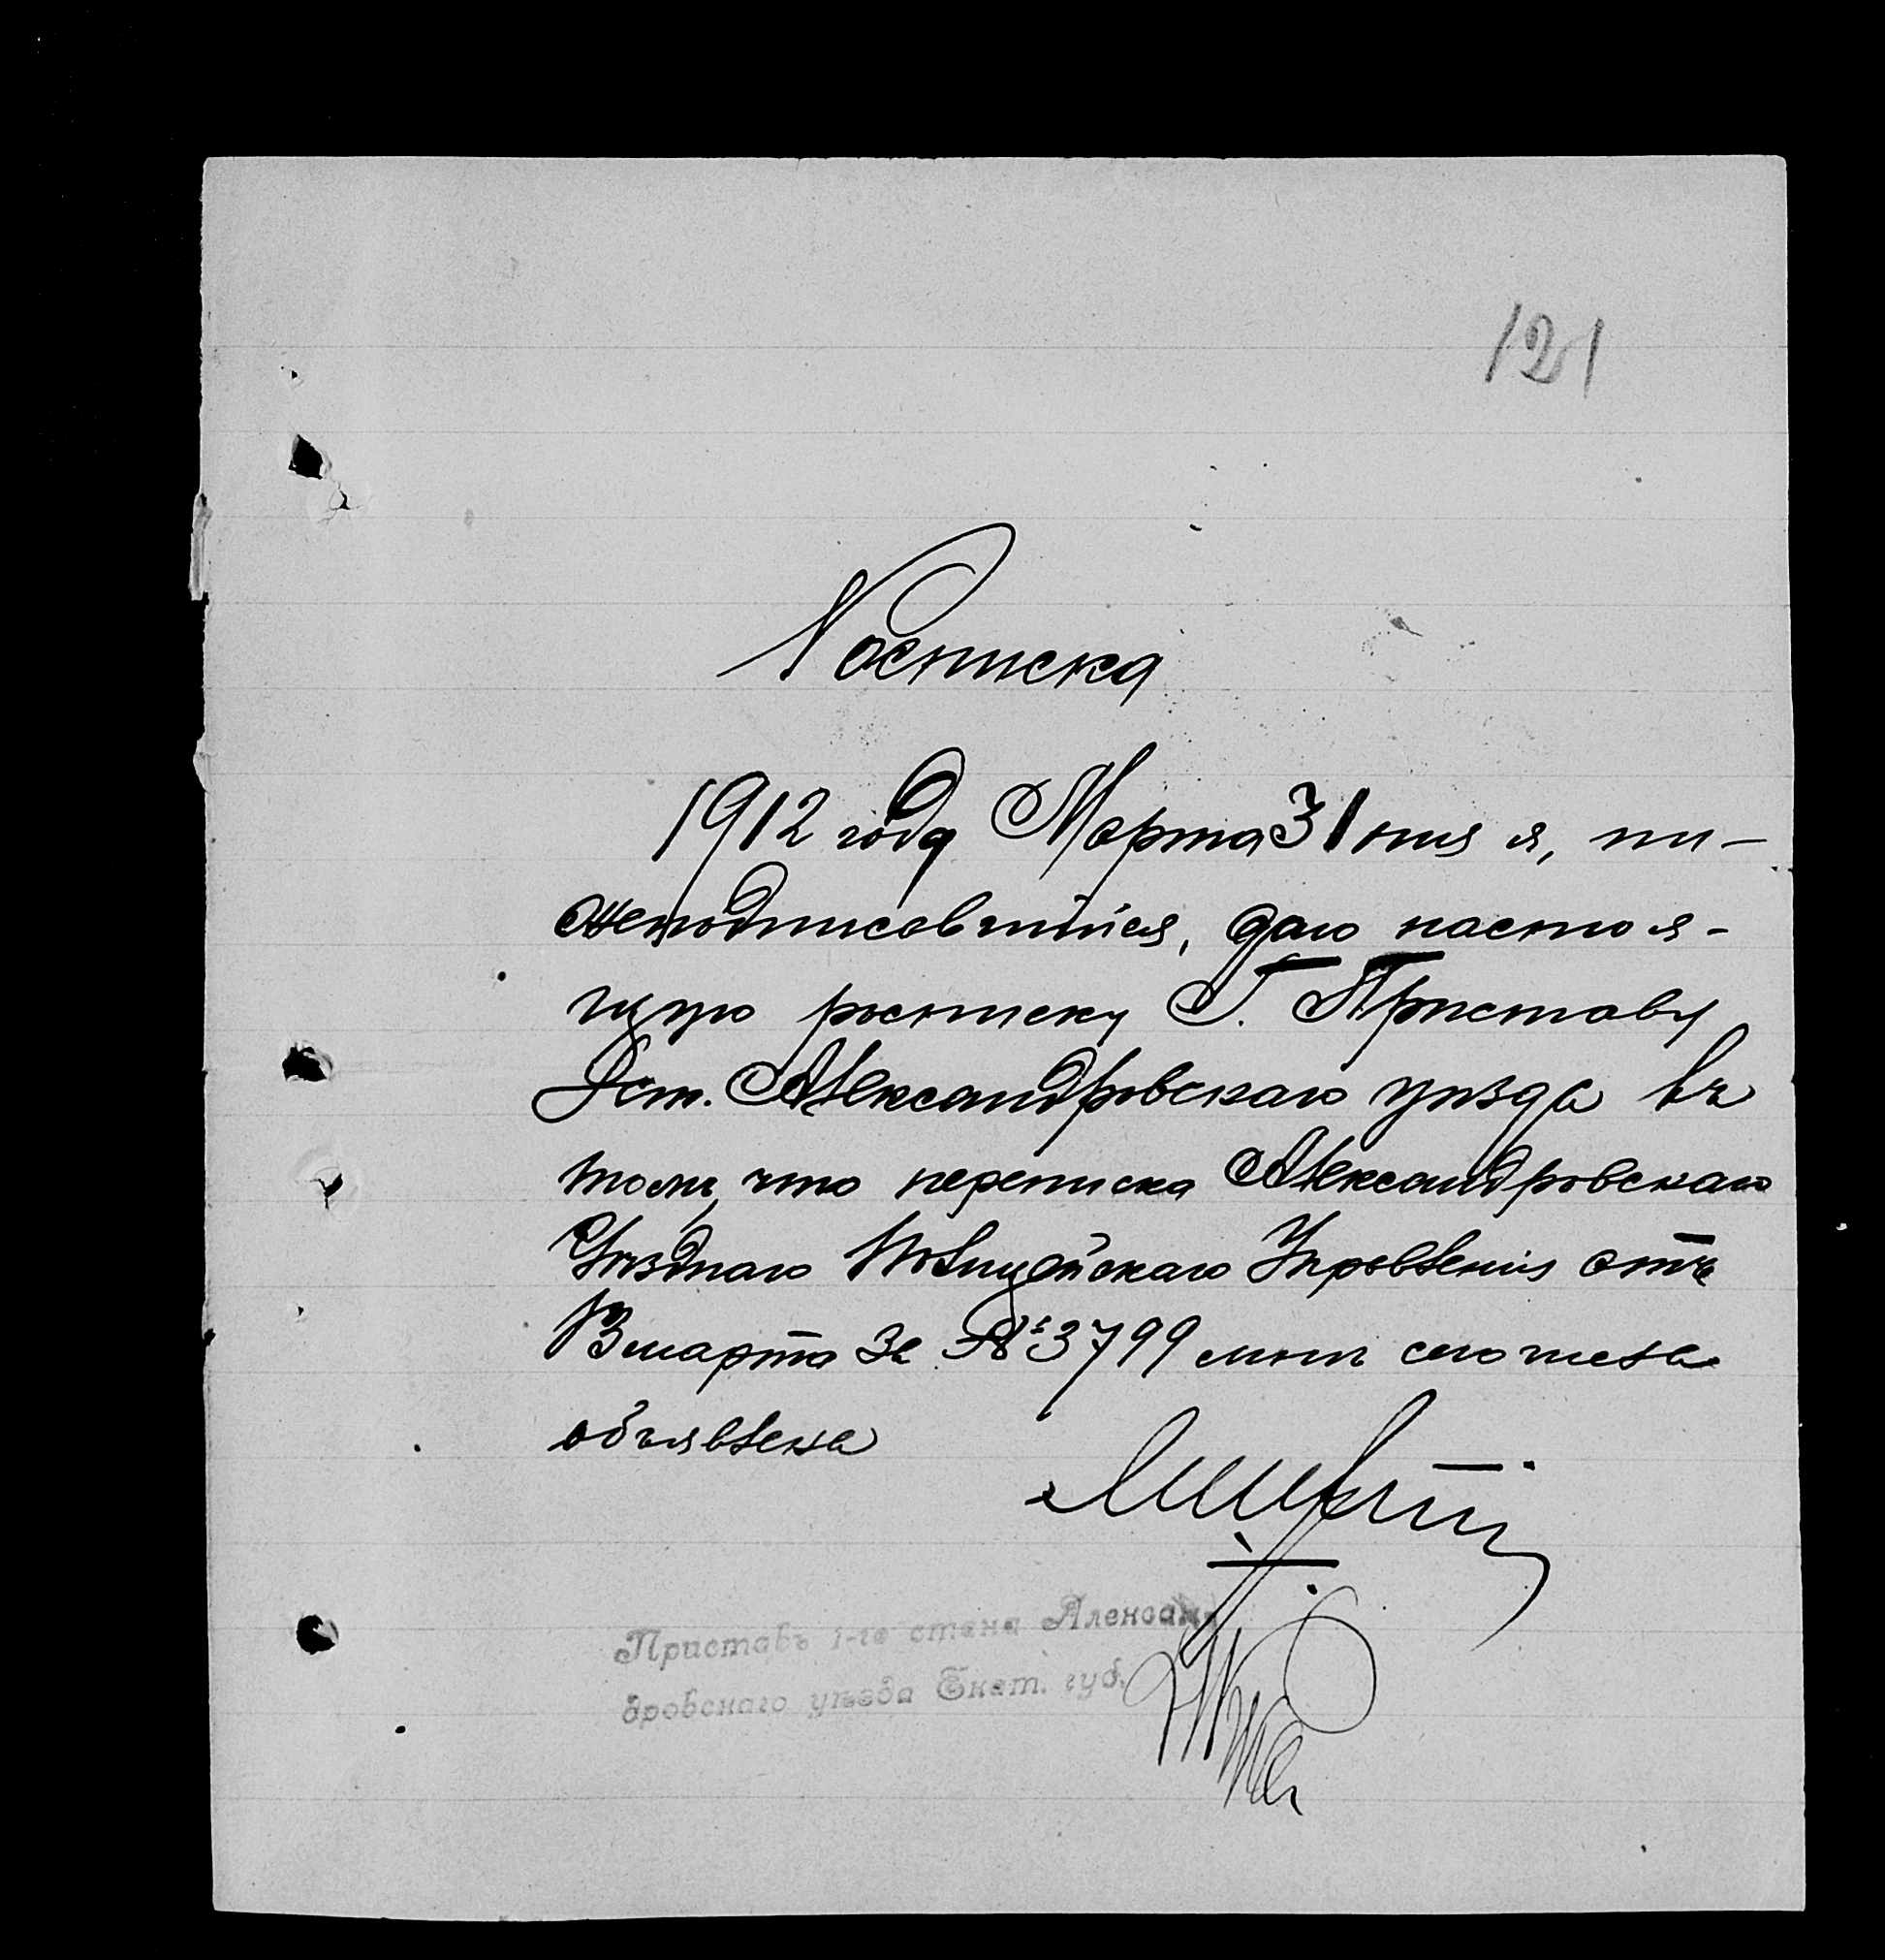 121
Росписка
1912 года Марта 31 дня я, ни-
жеподписавшийся, даю настоя-
щую росписку Г. Приставу
1 ст. Александровскаго уѣзда въ
томъ, что переписка Александровскаго
Уѣзднаго Полицейскаго Управленія отъ
13 марта за № 3799 мнѣ сего числа
объявлена
Приставъ 1-го стана Александ
ровскаго уѣзда Екат. губ.